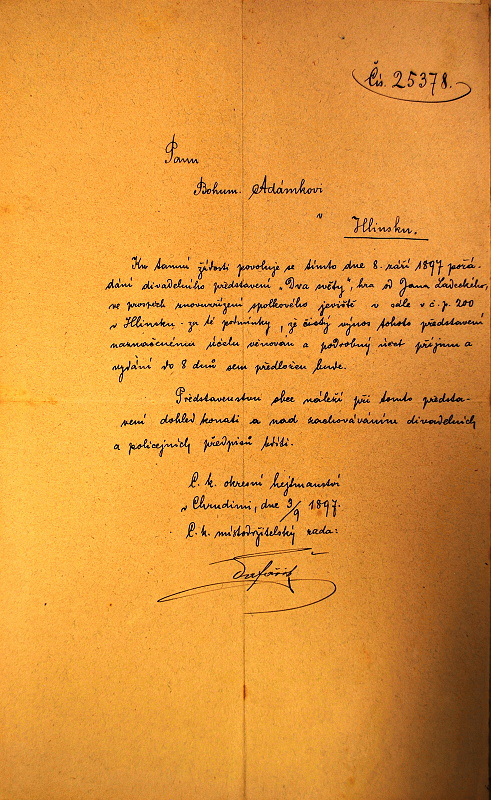 Čís. 25378.
Panu
Bohum. Adámkovi
v
Hlinsku.
Ku tamní žádosti povoluje se tímto dne 8. září 1897 pořá-
dání divadelního představení „Dva světy", hra od Jana Ladeckého,
ve prospěch znovuzřízení spolkového jeviště v sále v č. p. 200
v Hlinsku za té podmínky, že čistý výnos tohoto představení
naznačenému účelu věnován a podrobný účet příjmu a
vydání do 8 dnů sem předložen bude.
Představenstvu obce náleží při tomto předsta-
vení dohled konati a nad zachováváním divadelních
a policejních předpisů bdíti.
C. k. okresní hejtmanství
v Chrudimi, dne 3/9 1897.
C. k. místodržitelský rada: